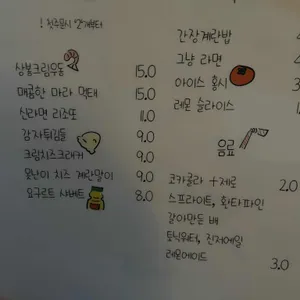 ! 첫주문시 2개부터
상봉크림우동 15.0
매콤한 마라 먹태 15.0
신라면 리조또 11.0
감자튀김들 9.0
크림치즈크래커 9.0
못난이 치즈 계란말이 9.0
요구르트 샤베트 8.0
간장계란밥
그냥 라면
아이스 홍시
레몬 슬라이스
음료
코카콜라 +제로 2.0
스프라이트, 환타파인
갈아만든 배
토닉워터, 진저에일
레몬에이드 3.0